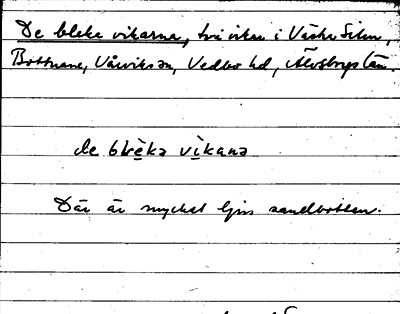 De bleka vikarna, två vikar i Västra Silen,
Bottnane, Vårviks sn, Vedbo hd, Älvsborgs län.
de blèka vìkana
Där är mycket ljus sandbotten.